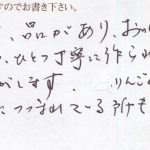 すのでお書き下さい。
、品があり、お
、ひとつ丁寧に作られ
がします。 りんご
につつまれている所も